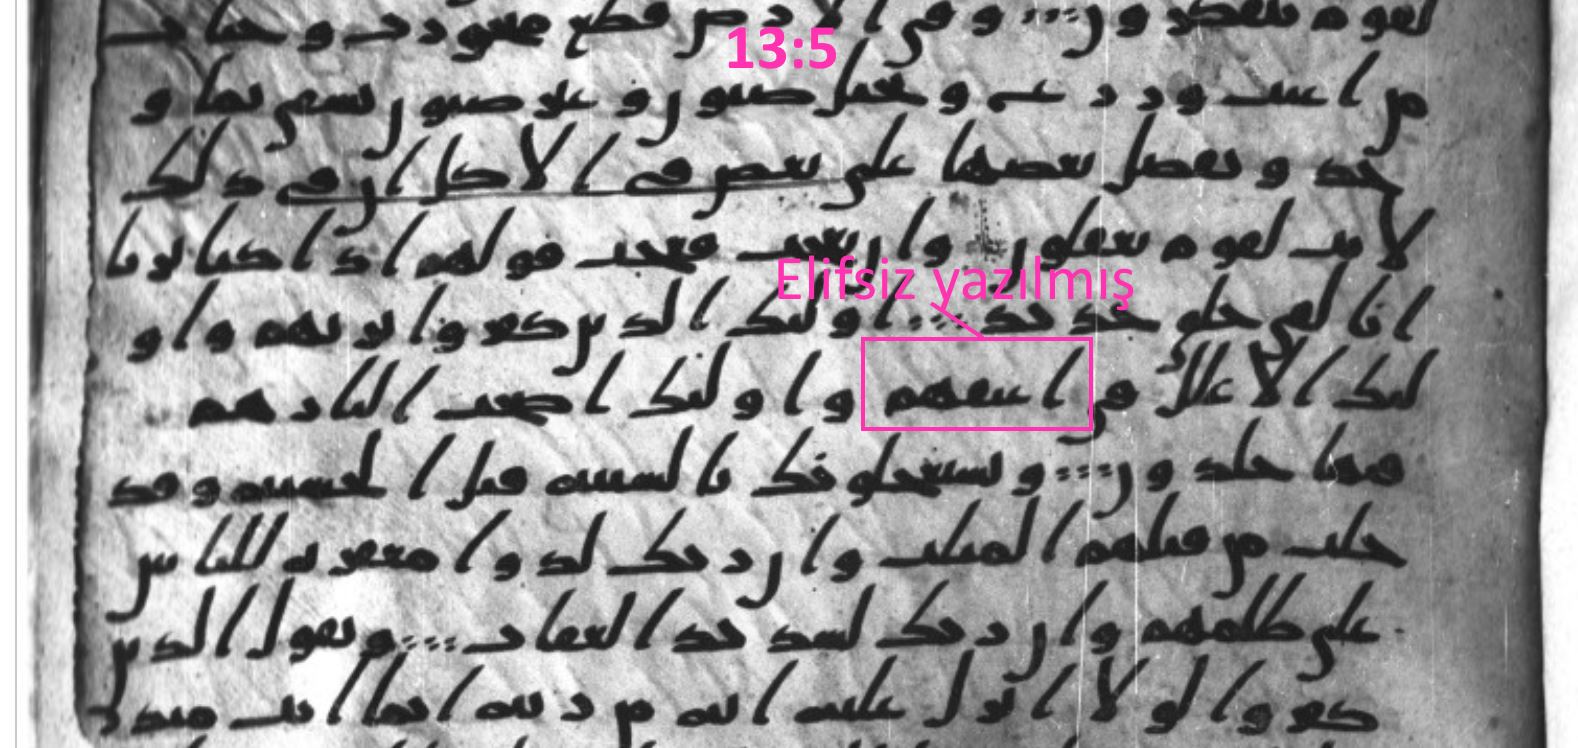 لقوم يتفكرون وفى الارض قطع متجورت وجنات
13:5
من اعنب وزرع ونخيل صنون وغير صنون يسقى بما و
حد ونفضل بعضها على بعض فى الاكل ان فى ذلك
لايت لقوم يعقلون وان تعجب فعجب قولهم اذا كنا تربا
Elifsiz yazılmış
انا لفى خلق جديد اولئك الذين كفروا بربهم واو
لئك الاغلل فى اعنقهم واولئك اصحب النار هم
فيها خلدون ويستعجلونك بالسيئة قبل الحسنة وقد
خلت من قبلهم المثلت وان ربك لذوا مغفرة للناس
على ظلمهم وان ربك لشديد العقاب ويقول الذين
كفروا لولا انزل عليه اية من ربه انما انت منذر